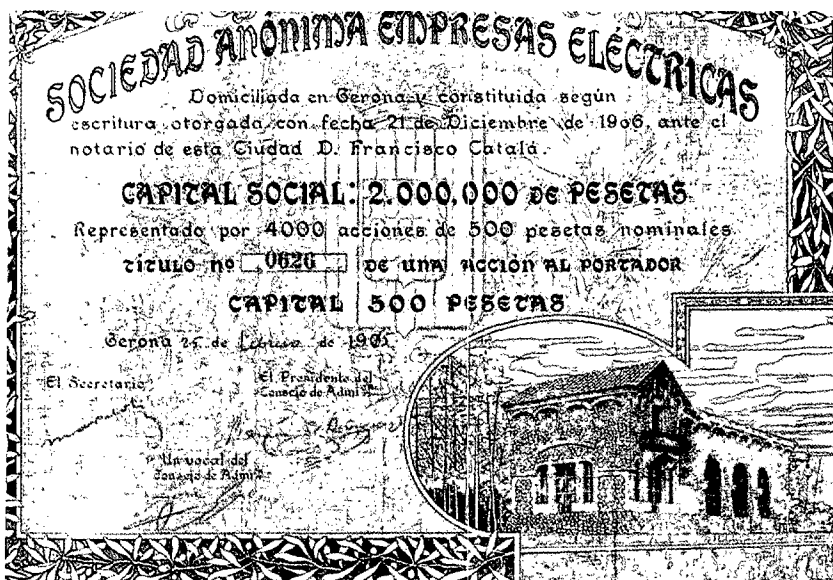 SOCIEDAD ANÓNIMA EMPRESAS ELÉCTRICAS
Domiciliada en Gerona y constituida según
escritura otorgada con fecha 21 de Diciembre de 1906, ante el
notario de esta Ciudad D. Francisco Catalá.
CAPITAL SOCIAL: 2.000.000 DE PESETAS
Representado por 4000 acciones de 500 pesetas nominales
TÍTULO nº 0626 DE UNA ACCIÓN AL PORTADOR
CAPITAL 500 PESETAS
Gerona 25 de de 190
El Secretario
El Presidente del
Consejo de Admón
Un vocal del
Consejo de Admón